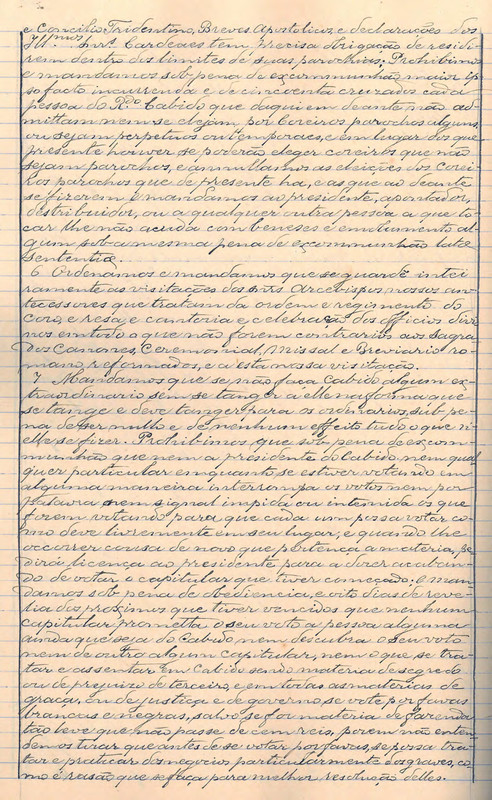 e Concilio Tridentino, Breves Apostolicos e declarações dos
Ill.mos Snr.s Cardeaes tem precisa obrigação de residi
rem dentro dos limites de suas parochias: Prohibimos
e mandamos sob pena de excommunhão maior ip
so facto incurrenda e de cincoenta cruzados cada
pessoa do R.do Cabido que daqui em deante não ad
mittam nem se elejam por Coreiros parochos alguns
ou sejam perpetuos ou temporaes, e em lugar dos que
presente houver se poderão eleger coreiros que não
sejam parochos, e annullamos as eleições dos Corei
ros parochos que de presente ha, e as que ao deante
se fizerem e mandamos ao presidente, apontador,
destribuidor, ou a qualquer outra pessoa a que to
car lhe não acuda com beneses e emolumento al
gum sob a mesma pena de excommunhão latæ
Sententiæ.
6 Ordenamos e mandamos que se guarde intei
ramente as visitações dos Snrs Arcebispos nossos an
tecessores que tratam da ordem e regimento do
Coro, e resa, e cantoria e celebração dos officios divi
nos em tudo o que não forem contrarios aos Sagra
dos Canones, Ceremonial, Missal e Breviario ro
mano, reformados, e a esta nossa visitação.
7 Mandamos que se não faça Cabido algum ex
traordinario sem se tanger a elle na forma que
se tange e deve tanger para os ordinarios, sub pe
na de ser nullo e de nenhum effeito tudo o que n'
elle se fizer. Prohibimos, que sob pena de excom
munhão que nem a presidente do Cabido nem qual
quer particular emquanto se estiver votando em
alguma maneira interrompa os votos nem por
palavra nem signal impida ou intemida os que
forem votando para que cada um possa votar co
mo deve livremente em seu lugar, e quando lhe
occorrer cousa de novo que pertença a materia, pe
dirá licença ao presidente para a dizer acaban
do de votar o capitular que tiver começado: e man
damos sob pena de obediencia, e oito dias de reve
lia dos proximos que tiver vencidos que nenhum
capitular prometta o seu voto a pessoa alguma
ainda que seja do Cabido, nem descubra o seu voto
nem de outro algum capitular, nem o que se tra
tar e assentar em Cabido sendo materia de segredo
ou de prejuizo de terceiro, e em todas as materias de
graça, ou de justiça e de governo, se vote por favas
brancas e negras, salvo se for materia de fazenda
tão leve que não passe de cem reis, porem não enten
demos tirar que antes de se votar por favas, se possa tra
tar e praticar dos negocios particularmente dos graves, co
mo é rasão que se faça para melhor resolução delles.